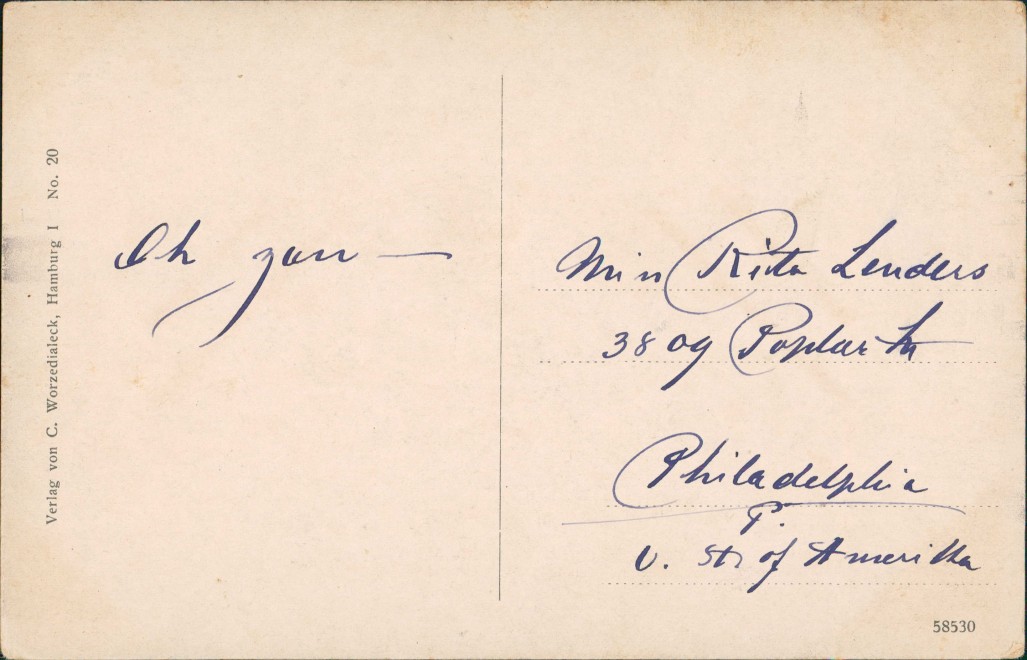 Verlag von C. Worzedialeck, Hamburg I No. 20
Oh
Miss Rita Lenders
3809 Poplar Str
Philadelphia
P.
U. St. of Amerika
58530